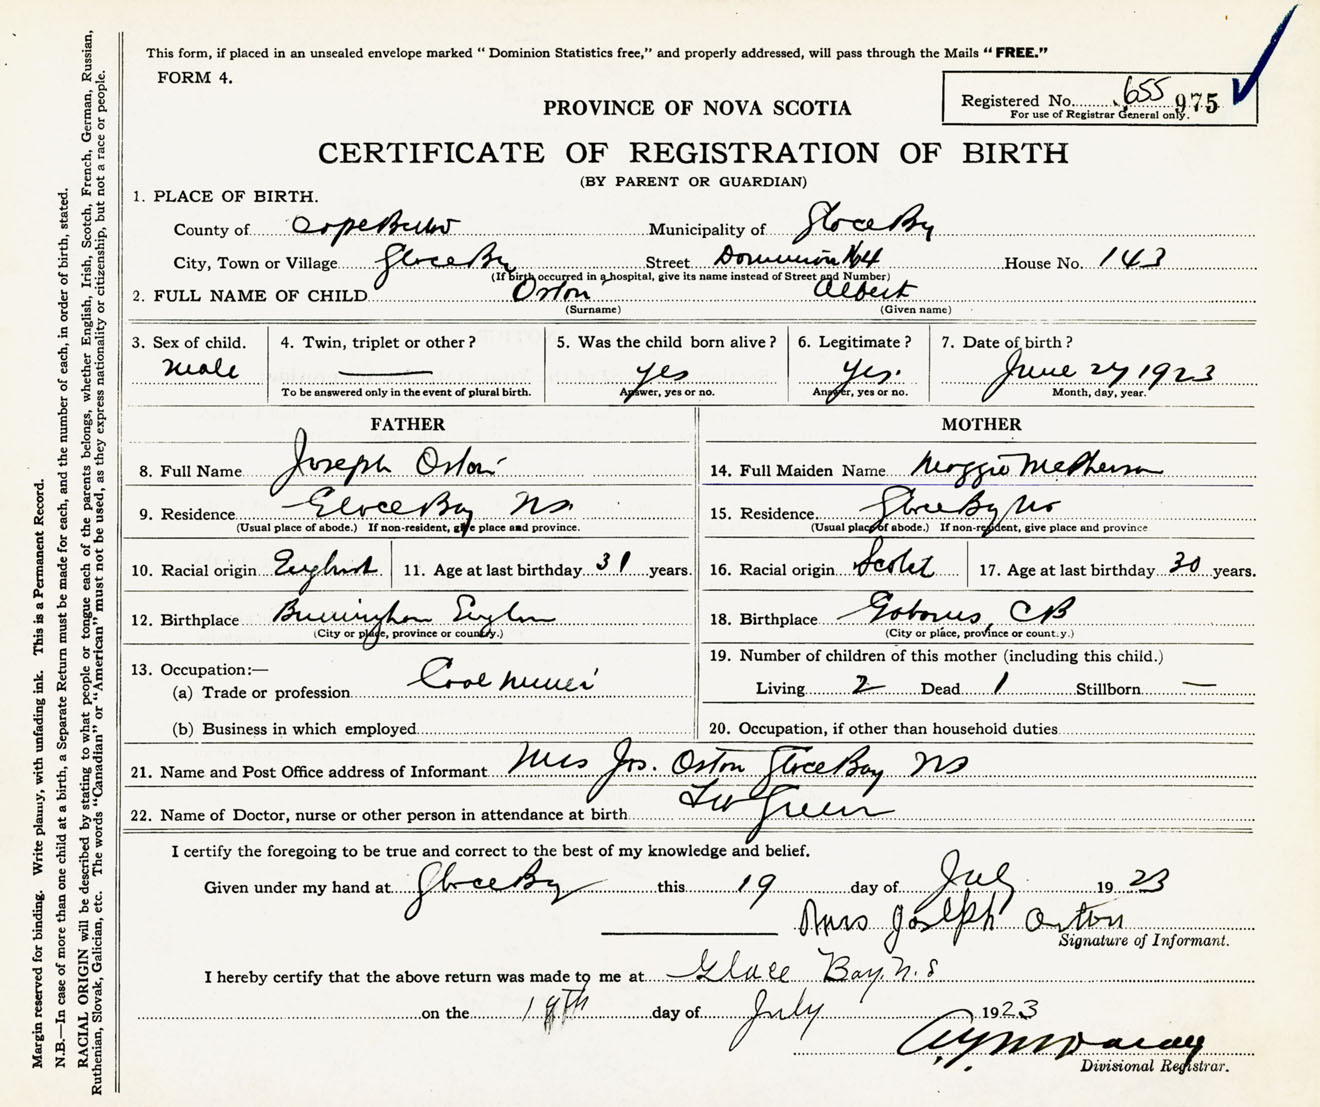 This form, if placed in an unsealed envelope marked " Dominion Statistics free," and properly addressed, will pass through the Mails "FREE."
FORM 4.
Registered No. 655 975
For use of Registrar General only.
PROVINCE OF NOVA SCOTIA
CERTIFICATE OF REGISTRATION OF BIRTH
(BY PARENT OR GUARDIAN)
1. PLACE OF BIRTH.
County of Cape Breton Municipality of Glace Bay
City, Town or Village Glace Bay Street Dominion No 4 House No. 143
(If birth occurred in a hospital, give its name instead of Street and Number)
2. FULL NAME OF CHILD Orton Albert
(Surname) (Given name)
3. Sex of child. 4. Twin, triplet or other? 5. Was the child born alive? 6. Legitimate? 7. Date of birth?
Male — yes yes. June 27 1923
To be answered only in the event of plural birth. Answer, yes or no. Answer, yes or no. Month, day, year.
FATHER MOTHER
8. Full Name Joseph Orton 14. Full Maiden Name Maggie McPherson
9. Residence Glace Bay NS. 15. Residence Glace Bay NS
(Usual place of abode.) If non-resident, give place and province. (Usual place of abode.) If non-resident, give place and province
10. Racial origin English 11. Age at last birthday 31 years. 16. Racial origin Scotch 17. Age at last birthday 30 years.
12. Birthplace Birmingham England 18. Birthplace Gabarus, CB
(City or place, province or country.) (City or place, province or country.)
13. Occupation:— 19. Number of children of this mother (including this child.)
(a) Trade or profession Coal Miner Living 2 Dead 1 Stillborn —
(b) Business in which employed 20. Occupation, if other than household duties
21. Name and Post Office address of Informant Mrs Jos. Orton Glace Bay NS
22. Name of Doctor, nurse or other person in attendance at birth Green
I certify the foregoing to be true and correct to the best of my knowledge and belief.
Given under my hand at Glace Bay this 19 day of July 1923
Mrs Joseph Orton
Signature of Informant.
I hereby certify that the above return was made to me at Glace Bay, N.S
on the day of July 1923
Divisional Registrar.
Margin reserved for binding. Write plainly, with unfading ink. This is a Permanent Record.
N.B.—In case of more than one child at a birth, a Separate Return must be made for each, and the number of each, in order of birth, stated.
RACIAL ORIGIN will be described by stating to what people or tongue each of the parents belongs, whether English, Irish, Scotch, French, German, Russian,
Ruthenian, Slovak, Galician, etc. The words "Canadian" or "American" must not be used, as they express nationality or citizenship, but not a race or people.